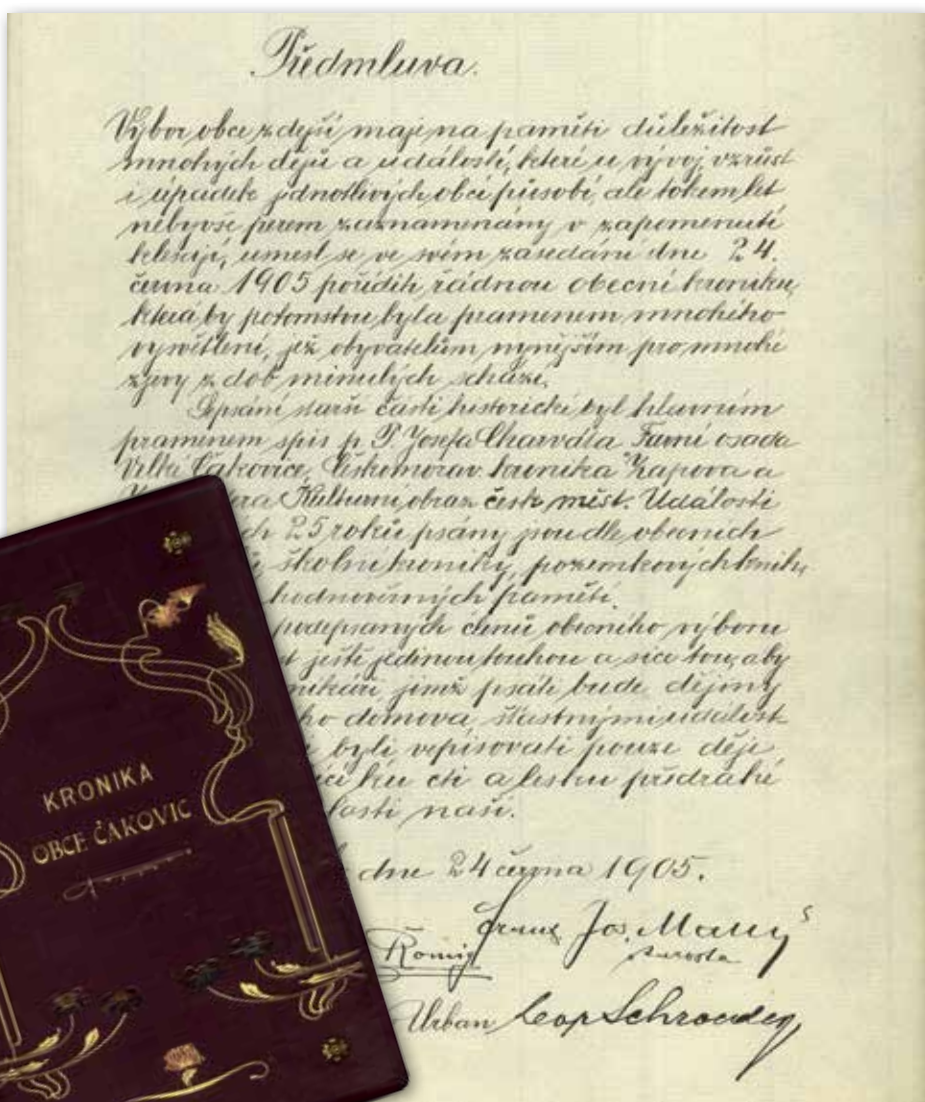 Předmluva.
Výbor obce zdejší maje na paměti důležitost
mnohých dějů a událostí, které u vývoj vzrůst
i úpadek jednotlivých obcí působí, ale tokem let
nebyvše perem zaznamenány v zapomenutí
klesají, usnesl se ve svém zasedání dne 24.
června 1905 poříditi řádnou obecní kroniku,
která by potomstvu byla pramenem mnohého
vysvětlení, jež obyvatelům nynějším pro mnohé
zjevy z dob minulých schází.
Sepsání starší části historické byl hlavním
pramenem spis p. P. Josefa Charváta Farní osada
Velké Čakovice, Českomorav. kronika Zapova a
Kulturní obraz česk. měst. Události
25 roků psány podle obecních
školní kroniky, pozemkových knih,
hodnověrných pamětí.
podepsaných členů obecního výboru
ještě jedinou touhou a sice tou, aby
jimž psáti bude dějiny
domova, šťastnými událost
byli vepisovati pouze děje
ku cti a lesku předrahé
vlasti naší.
dne 24 června 1905.
Franz Jos. Malý
starosta
Romig
Urban Leop Schroeder
KRONIKA
OBCE ČAKOVIC